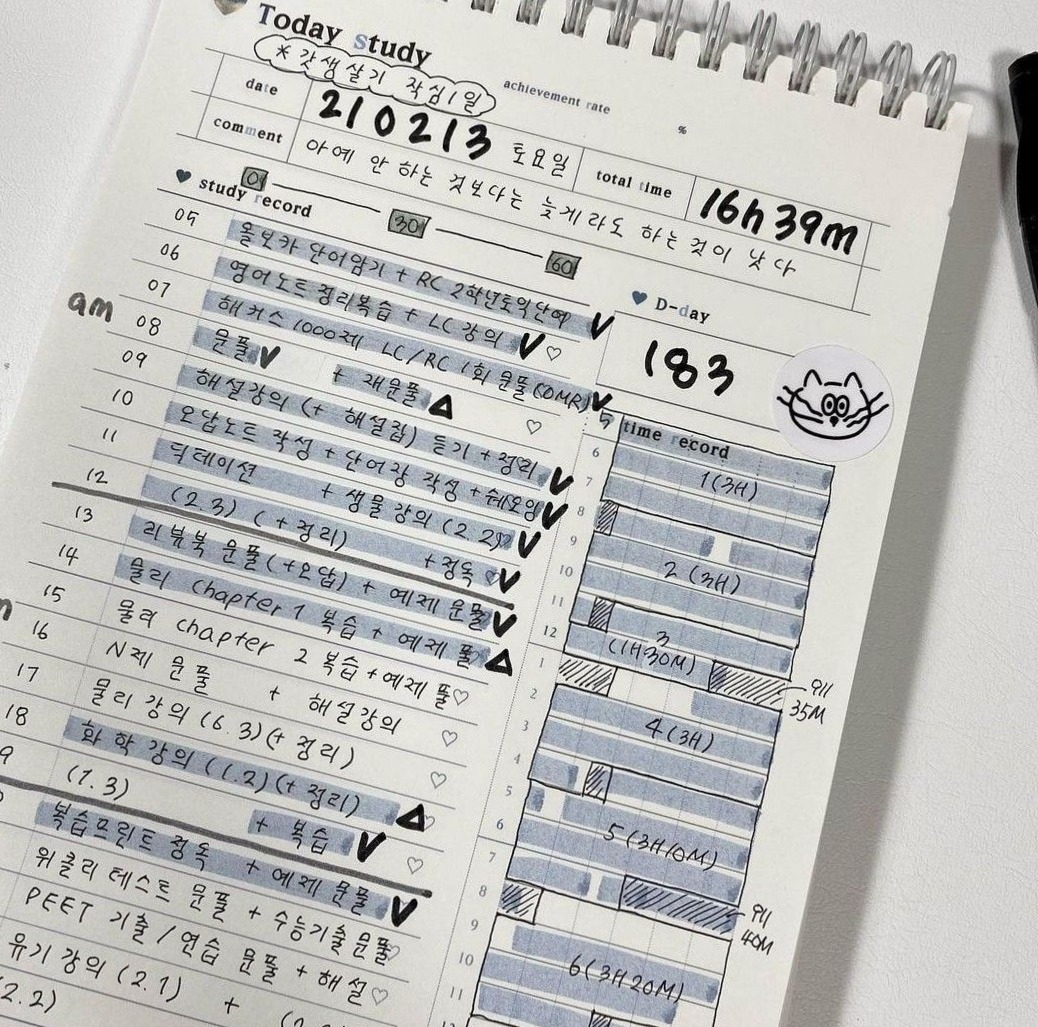 Today study
* 갓생살기 작심1일
achievement rate
%
date
210213 토요일
total time
16h 39m
comment
아예 안 하는 것보다는 늦게라도 하는 것이 낫다
study record
0 30 60
D-day
183
am
05
06
07
08
09
10
11
12
13
14
15
16
17
18
올보카 단어암기 + RC 2학년토익단어
영어노트정리복습 + LC 강의
해커스 1000제 LC/RC 1회 문풀(OMR)
문풀 + 재문풀
해설강의 (+ 해설집) 듣기 + 정리
오답노트 작성 + 단어장 작성 + 쉐도잉
딕테이션 + 생물 강의 (2.2)
(2.3) (+ 정리) + 정독
리뷰북 문풀(+오답) + 예제 문풀
물리 chapter 1 복습 + 예제 풀
물리 chapter 2 복습 + 예제 풀
N제 문풀 + 해설강의
물리 강의 (6.3)(+ 정리)
화학강의 (1.2)(+ 정리)
(1.3) + 복습
복습프린트 정독 + 예제 문풀
위클리 테스트 문풀 + 수능기출문풀
PEET 기출/연습 문풀 + 해설
유기 강의 (2.1) +
(2.2)
time record
5
6
7
8
9
10
11
12
1
2
3
4
5
6
7
8
9
10
11
1(3H)
2(3H)
3
(1H30M)
35M
4(3H)
5(3H10M)
40M
6(3H20M)